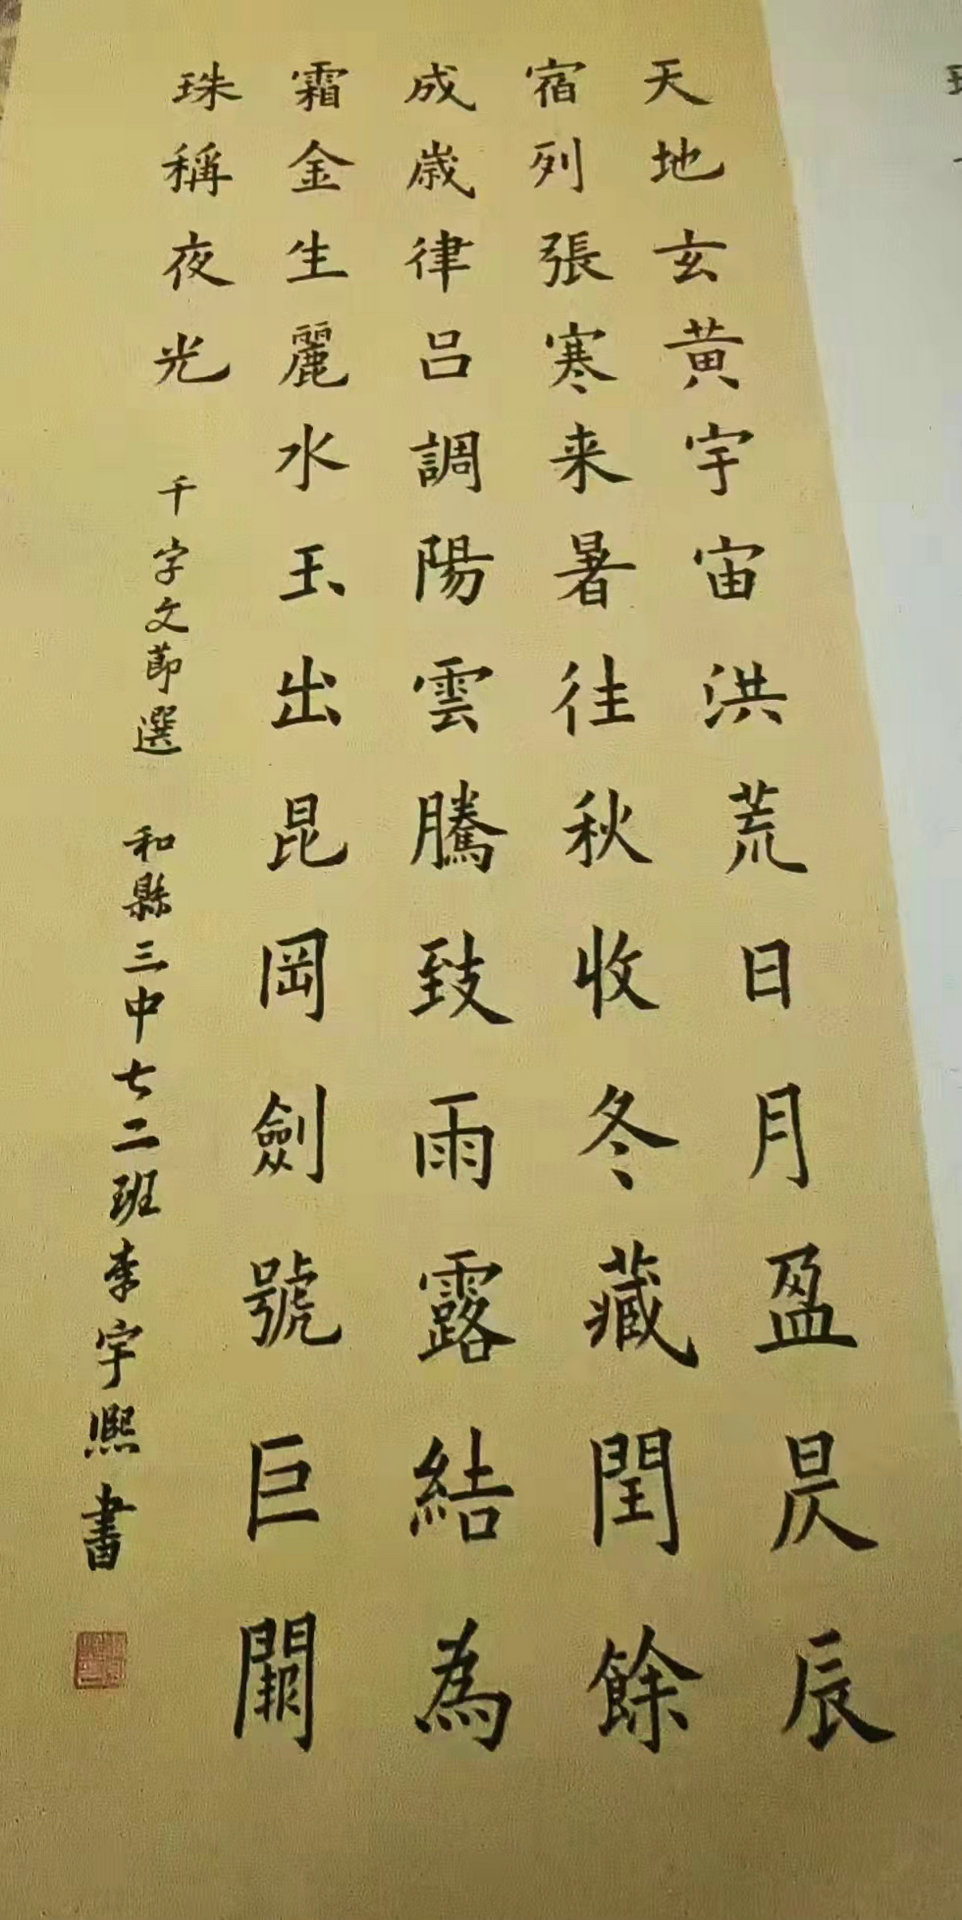 天地玄黄宇宙洪荒日月盈昃辰
宿列張寒来暑往秋收冬藏閏餘
成歳律呂調陽雲騰致雨露結為
霜金生麗水玉出昆岡劍號巨闕
珠稱夜光
千字文節選 和縣三中七二班李宇熙書